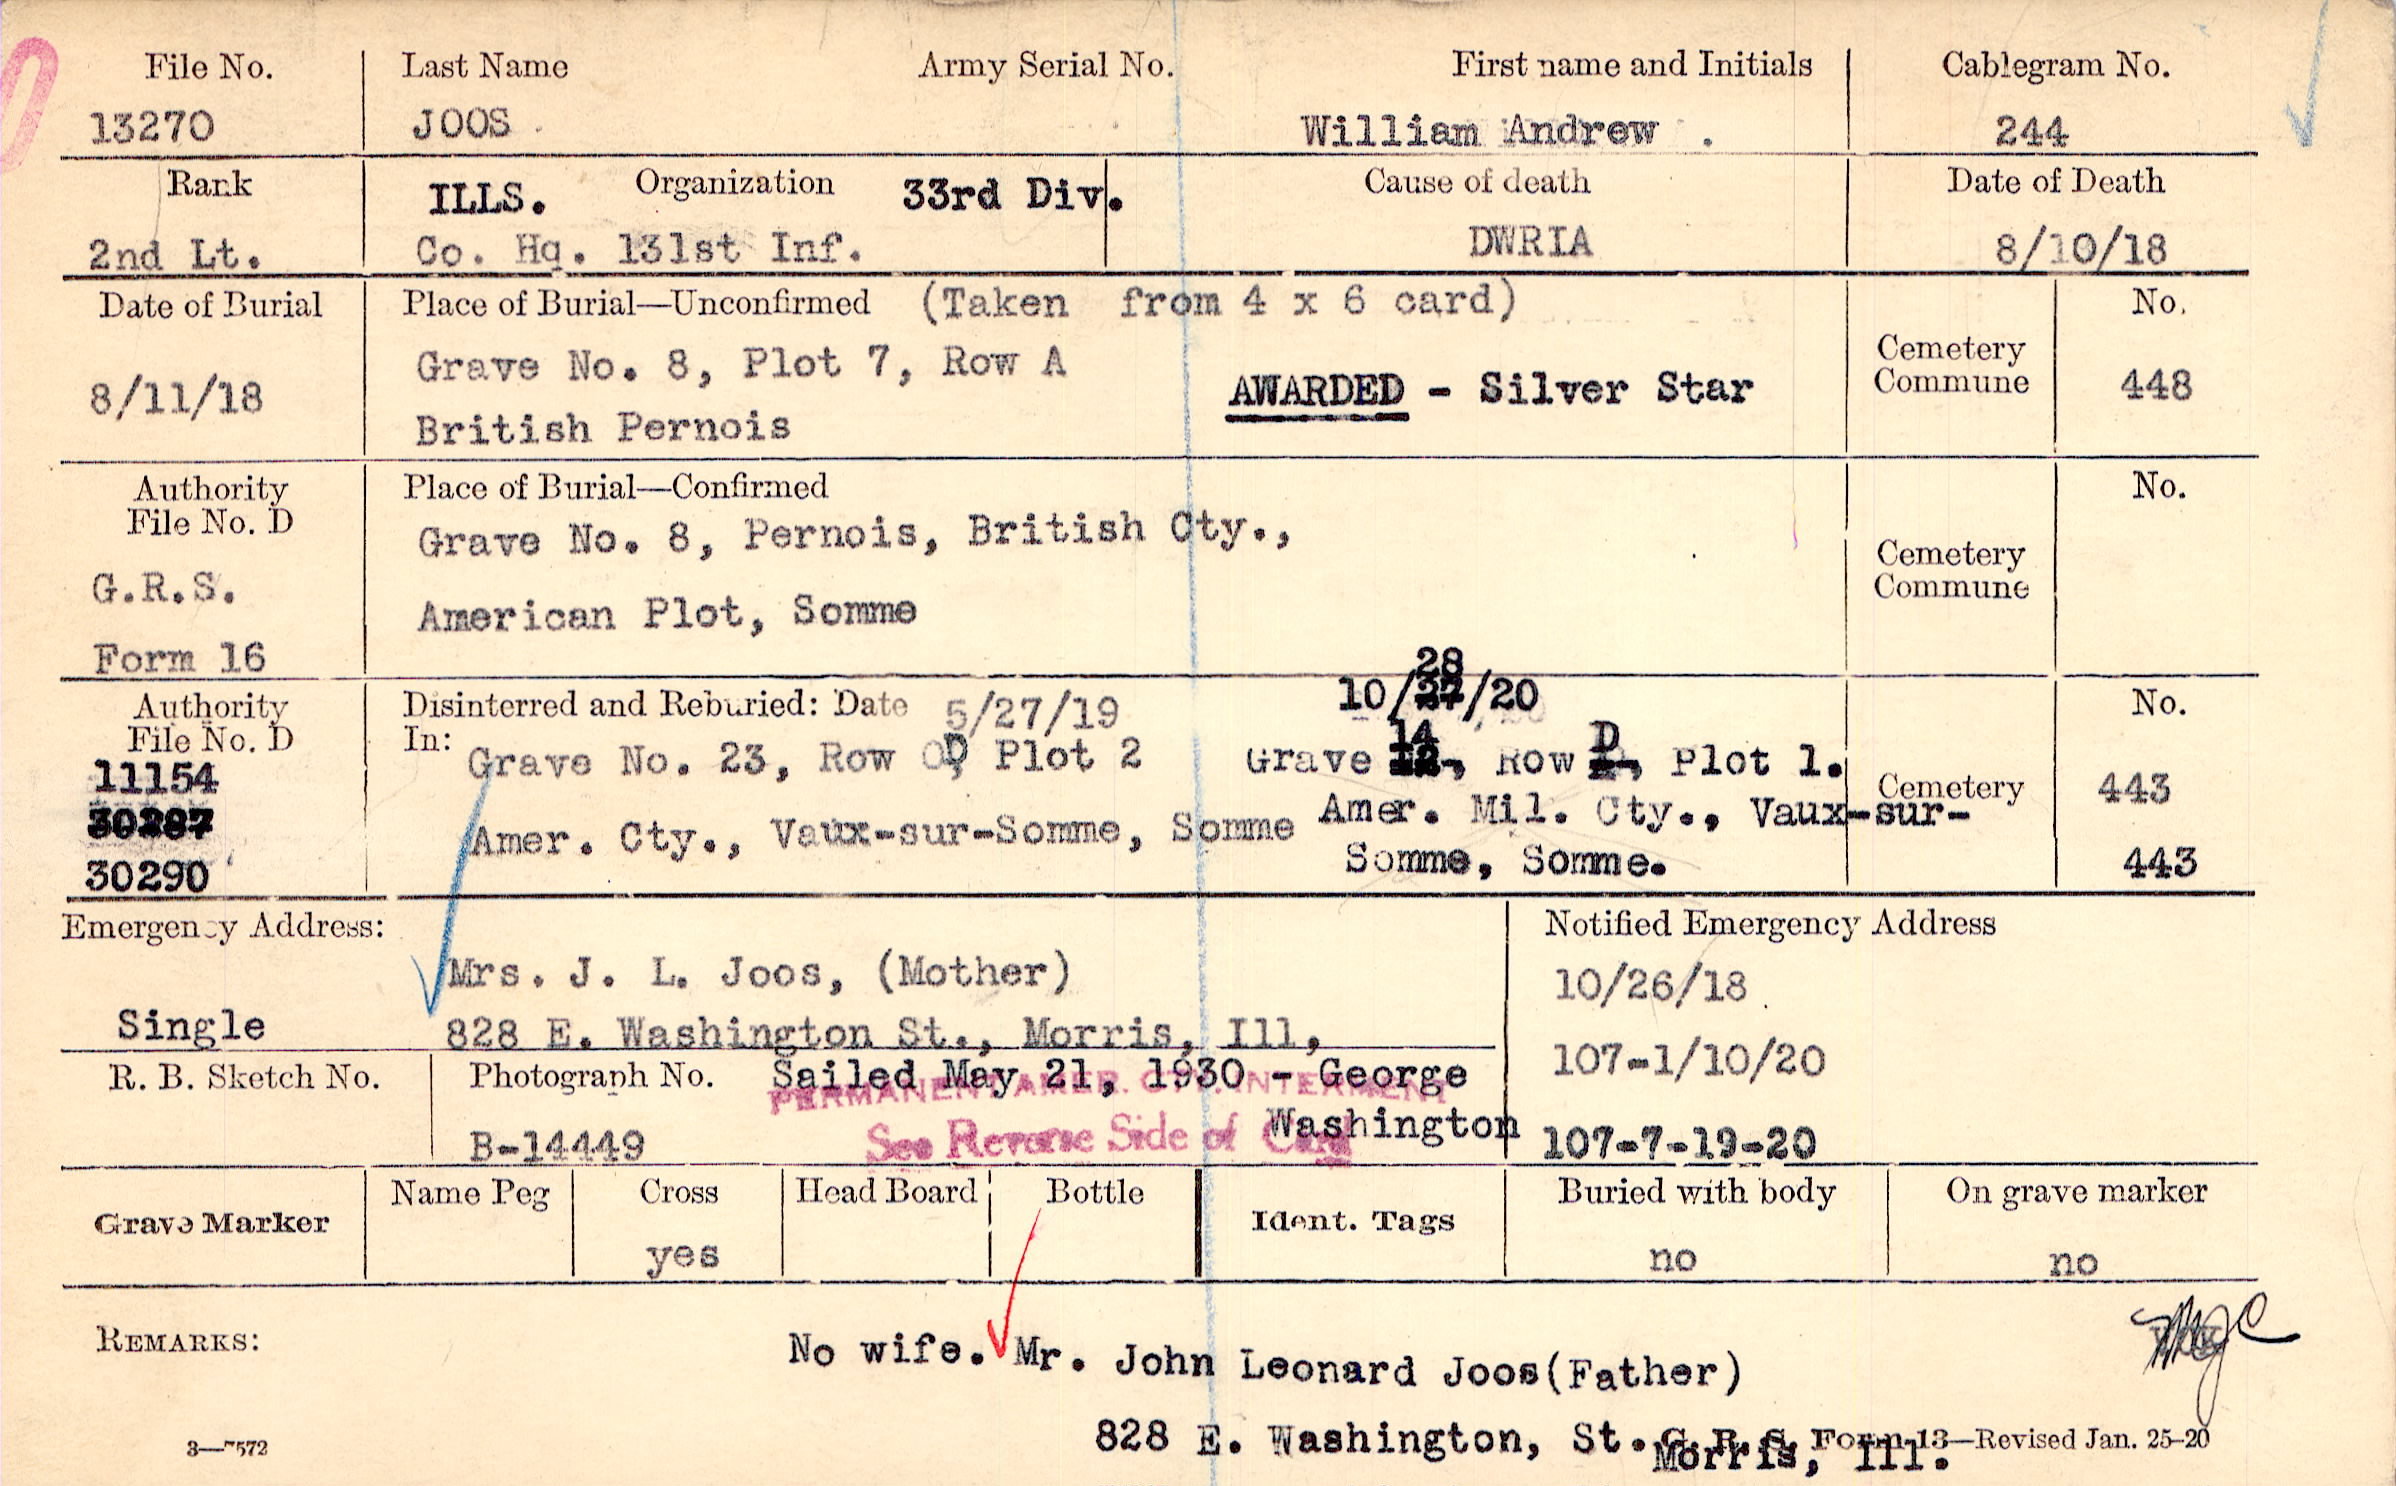 File No. Last Name Army Serial No. First name and Initials Cablegram No.
13270 JOOS William Andrew . 244
Rank ILLS. Organization 33rd Div. Cause of death Date of Death
2nd Lt. Co. Hq. 131st Inf. DWRIA 8/10/18
Date of Burial Place of Burial—Unconfirmed (Taken from 4 x 6 card) No.
Grave No. 8, Plot 7, Row A Cemetery
8/11/18 AWARDED - Silver Star Commune 448
British Pernois
Authority Place of Burial—Confirmed No.
File No. D
Grave No. 8, Pernois, British Cty., Cemetery
G.R.S. Commune
American Plot, Somme
Form 16
28
Authority Disinterred and Reburied: Date 5/27/19 10/27/20 No.
File No. D In:
14 D
11154 Grave No. 23, Row D, Plot 2 Grave 12, Row , Plot 1. Cemetery 443
30287 Amer. Cty., Vaux-sur-Somme, Somme Amer. Mil. Cty., Vaux-sur-
30290 Somme, Somme. 443
Emergency Address: Notified Emergency Address
Mrs. J. L. Joos, (Mother) 10/26/18
Single 828 E. Washington St., Morris, Ill,
107-1/10/20
R. B. Sketch No. Photograph No. Sailed May 21, 1930 - George
PERMANENT AMER. INTERMENT
Washington
B-14449 See Reverse Side of Card 107-7-19-20
Grave Marker Name Peg Cross Head Board Bottle Ident. Tags Buried with body On grave marker
yes no no
REMARKS: No wife. Mr. John Leonard Joos(Father)
828 E. Washington, St.
3—7572 G. R. S. Form 13—Revised Jan. 25-20
Morris, Ill.